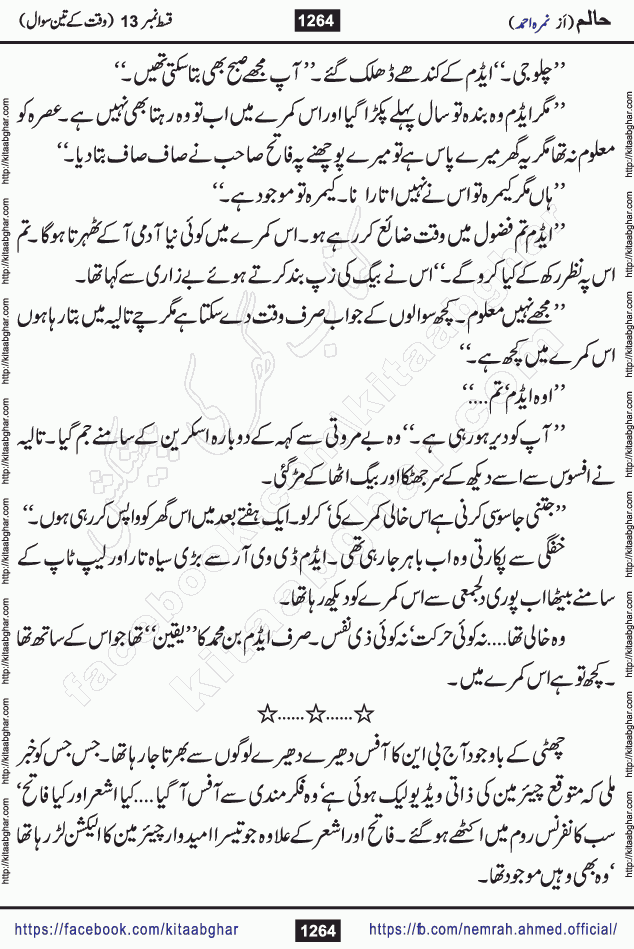 حالم (از نمرہ احمد)
1264
قسط نمبر 13 (وقت کے تین سوال)
’’چلو جی۔‘‘ ایڈم کے کندھے ڈھلک گئے۔ ’’آپ مجھے صبح بھی بتا سکتی تھیں۔‘‘
’’مگر ایڈم وہ بندہ تو سال پہلے پکڑا گیا اور اس کمرے میں اب تو وہ رہتا بھی نہیں ہے۔ عصرہ کو
معلوم نہ تھا مگر یہ گھر میرے پاس ہے تو میرے پوچھنے پہ فاتح صاحب نے صاف صاف بتا دیا۔‘‘
’’ہاں مگر کیمرہ تو اس نے نہیں اتارا نا۔ کیمرہ تو موجود ہے۔‘‘
’’ایڈم تم فضول میں وقت ضائع کر رہے ہو۔ اس کمرے میں کوئی نیا آدمی آ کے ٹھہرتا ہو گا۔ تم
اس پہ نظر رکھ کے کیا کرو گے۔‘‘ اس نے بیگ کی زپ بند کرتے ہوئے بے زاری سے کہا تھا۔
’’مجھے نہیں معلوم۔ کچھ سوالوں کے جواب صرف وقت دے سکتا ہے مگر چے تالیہ میں بتا رہا ہوں
اس کمرے میں کچھ ہے۔‘‘
’’اوہ ایڈم‘ تم....‘‘
’’آپ کو دیر ہو رہی ہے۔‘‘ وہ بے مروتی سے کہہ کے دوبارہ اسکرین کے سامنے جم گیا۔ تالیہ
نے افسوس سے اسے دیکھ کے سر جھٹکا اور بیگ اٹھا کے مڑ گئی۔
’’جتنی جاسوسی کرنی ہے اس خالی کمرے کی‘ کر لو۔ ایک ہفتے بعد میں اس گھر کو واپس کر رہی ہوں۔‘‘
خفگی سے پکارتی وہ اب باہر جا رہی تھی۔ ایڈم ڈی وی آر سے بڑی سیاہ تار اور لیپ ٹاپ کے
سامنے بیٹھا اب پوری دلجمعی سے اس کمرے کو دیکھ رہا تھا۔
وہ خالی تھا.... نہ کوئی حرکت‘ نہ کوئی ذی نفس۔ صرف ایڈم بن محمد کا ’’یقین‘‘ تھا جو اس کے ساتھ تھا
۔ کچھ تو ہے اس کمرے میں۔
☆......☆......☆
چھٹی کے باوجود آج بی این کا آفس دھیرے دھیرے لوگوں سے بھرتا جا رہا تھا۔ جس جس کو خبر
ملی کہ متوقع چیئرمین کی ذاتی ویڈیو لیک ہوئی ہے‘ وہ فکر مندی سے آفس آ گیا.... کیا اشعر اور کیا فاتح‘
سب کانفرنس روم میں اکٹھے ہو گئے۔ فاتح اور اشعر کے علاوہ جو تیسرا امیدوار چیئرمین کا الیکشن لڑ رہا تھا
‘ وہ بھی وہیں موجود تھا۔
https://facebook.com/kitaabghar
1264
https://fb.com/nemrah.ahmed.official/
http://kitaabghar.com
facebook.com/kitaabghar
kitaabghar.com
کتاب گھر کی پیشکش